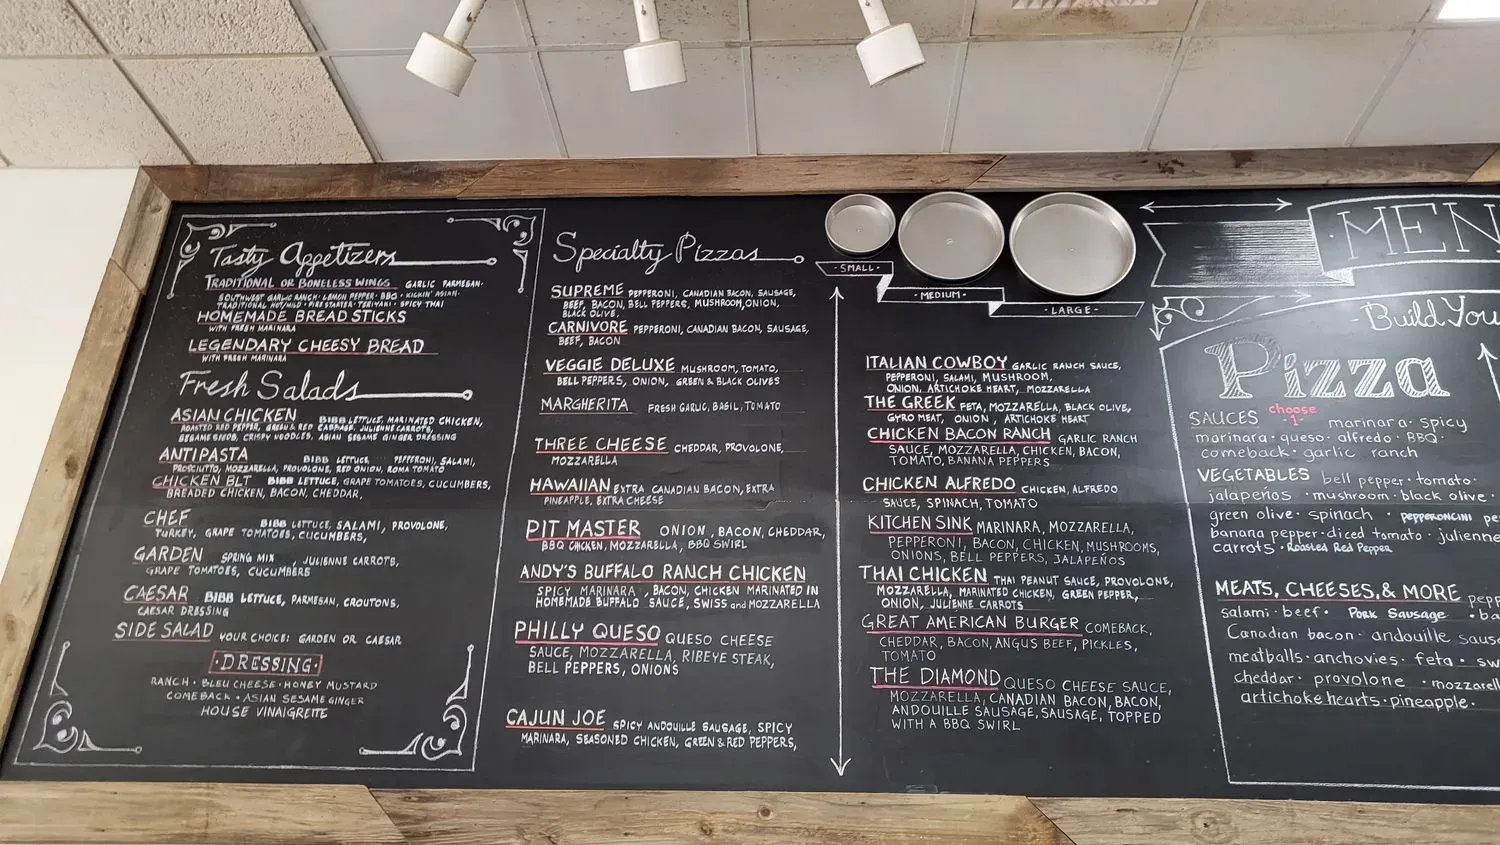 Tasty Appetizers
TRADITIONAL OR BONELESS WINGS GARLIC PARMESAN·
SOUTHWEST GARLIC RANCH · LEMON PEPPER · BBQ · KICKIN' ASIAN·
TRADITIONAL HOT/MILD · FIRESTARTER · TERIYAKI · SPICY THAI
HOMEMADE BREAD STICKS
WITH FRESH MARINARA
LEGENDARY CHEESY BREAD
WITH FRESH MARINARA
Fresh Salads
ASIAN CHICKEN BIBB LETTUCE, MARINATED CHICKEN,
ROASTED RED PEPPER, GREEN & RED CABBAGE, JULIENNE CARROTS,
SESAME SEEDS, CRISPY NOODLES, ASIAN SESAME GINGER DRESSING
ANTIPASTA BIBB LETTUCE, PEPPERONI, SALAMI,
PROSCIUTTO, MOZZARELLA, PROVOLONE, RED ONION, ROMA TOMATO
CHICKEN BLT BIBB LETTUCE, GRAPE TOMATOES, CUCUMBERS,
BREADED CHICKEN, BACON, CHEDDAR,
CHEF BIBB LETTUCE, SALAMI, PROVOLONE,
TURKEY, GRAPE TOMATOES, CUCUMBERS,
GARDEN SPRING MIX , JULIENNE CARROTS,
GRAPE TOMATOES, CUCUMBERS
CAESAR BIBB LETTUCE, PARMESAN, CROUTONS,
CAESAR DRESSING
SIDE SALAD YOUR CHOICE: GARDEN OR CAESAR
·DRESSING·
RANCH · BLEU CHEESE · HONEY MUSTARD
COMEBACK · ASIAN SESAME GINGER
HOUSE VINAIGRETTE
Specialty Pizzas
SUPREME PEPPERONI, CANADIAN BACON, SAUSAGE,
BEEF, BACON, BELL PEPPERS, MUSHROOM, ONION,
BLACK OLIVE.
CARNIVORE PEPPERONI, CANADIAN BACON, SAUSAGE,
BEEF, BACON
VEGGIE DELUXE MUSHROOM, TOMATO,
BELL PEPPERS, ONION, GREEN & BLACK OLIVES
MARGHERITA FRESH GARLIC, BASIL, TOMATO
THREE CHEESE CHEDDAR, PROVOLONE,
MOZZARELLA
HAWAIIAN EXTRA CANADIAN BACON, EXTRA
PINEAPPLE, EXTRA CHEESE
PIT MASTER ONION, BACON, CHEDDAR,
BBQ CHICKEN, MOZZARELLA, BBQ SWIRL
ANDY'S BUFFALO RANCH CHICKEN
SPICY MARINARA , BACON, CHICKEN MARINATED IN
HOMEMADE BUFFALO SAUCE, SWISS and MOZZARELLA
PHILLY QUESO QUESO CHEESE
SAUCE, MOZZARELLA, RIBEYE STEAK,
BELL PEPPERS, ONIONS
CAJUN JOE SPICY ANDOUILLE SAUSAGE, SPICY
MARINARA, SEASONED CHICKEN, GREEN & RED PEPPERS,
-SMALL-
-MEDIUM-
-LARGE-
ITALIAN COWBOY GARLIC RANCH SAUCE,
PEPPERONI, SALAMI, MUSHROOM,
ONION, ARTICHOKE HEART, MOZZARELLA
THE GREEK FETA, MOZZARELLA, BLACK OLIVE,
GYRO MEAT, ONION, ARTICHOKE HEART
CHICKEN BACON RANCH GARLIC RANCH
SAUCE, MOZZARELLA, CHICKEN, BACON,
TOMATO, BANANA PEPPERS
CHICKEN ALFREDO CHICKEN, ALFREDO
SAUCE, SPINACH, TOMATO
KITCHEN SINK MARINARA, MOZZARELLA,
PEPPERONI, BACON, CHICKEN, MUSHROOMS,
ONIONS, BELL PEPPERS, JALAPEÑOS
THAI CHICKEN THAI PEANUT SAUCE, PROVOLONE,
MOZZARELLA, MARINATED CHICKEN, GREEN PEPPER,
ONION, JULIENNE CARROTS
GREAT AMERICAN BURGER COMEBACK,
CHEDDAR, BACON, ANGUS BEEF, PICKLES,
TOMATO
THE DIAMOND QUESO CHEESE SAUCE,
MOZZARELLA, CANADIAN BACON, BACON,
ANDOUILLE SAUSAGE, SAUSAGE, TOPPED
WITH A BBQ SWIRL
MEN
-Build You
Pizza
SAUCES choose ·1· marinara · spicy
marinara · queso · alfredo · BBQ·
comeback · garlic ranch
VEGETABLES bell pepper · tomato·
jalapeños · mushroom · black olive ·
green olive · spinach · PEPPERONCINI pe
banana pepper · diced tomato · julienne
carrots · Roasted Red Pepper
MEATS, CHEESES, & MORE pepp
salami · beef · Pork Sausage · ba
Canadian bacon · andouille saus
meatballs · anchovies · feta · sw
cheddar · provolone · mozzarell
artichoke hearts · pineapple·